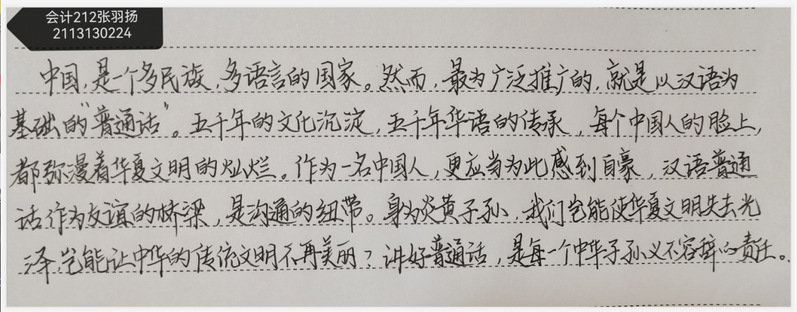 会计212张羽扬
2113130224
中国,是一个多民族,多语言的国家。然而,最为广泛推广的,就是以汉语为
基础的“普通话”。五千年的文化沉淀,五千年华语的传承,每个中国人的脸上,
都弥漫着华夏文明的灿烂。作为一名中国人,更应当为此感到自豪,汉语普通
话作为友谊的桥梁,是沟通的纽带。身为炎黄子孙,我们岂能使华夏文明失去光
泽,岂能让中华的传统文明不再美丽?讲好普通话,是每一个中华子孙义不容辞的责任。